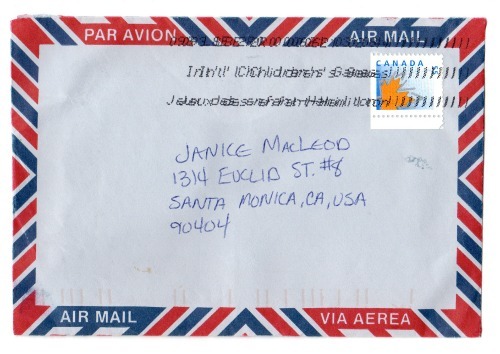 PAR AVION
AIR MAIL
CANADA
Int'l Children's Games
Jeux des enfants Hamilton
JANICE MACLEOD
1314 EUCLID ST. #8
SANTA MONICA, CA, USA
90404
AIR MAIL
VIA AEREA